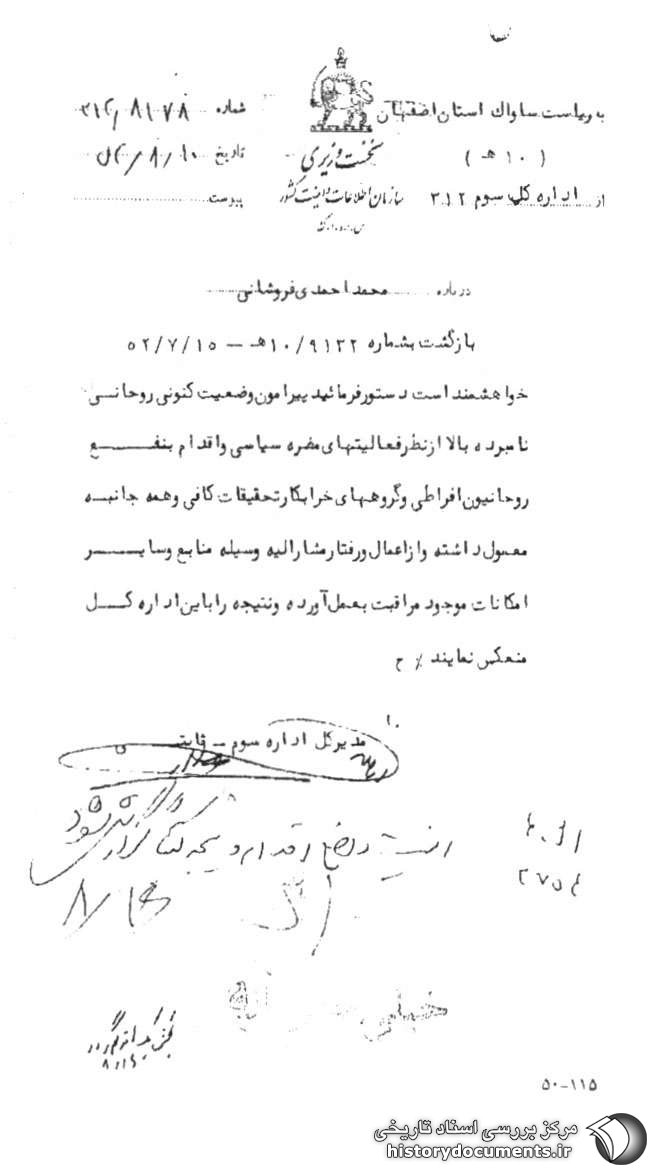 به ریاست ساواك استان اصفهان
( ۱۰ هـ )
از اداره كل سوم ۳۱۲
نخست وزیری
سازمان اطلاعات و امنیت کشور
س.ا.و.ا.ك
شماره ۳۱۲٫۸۱۷۸
تاریخ
پیوست
درباره محمد احمدی فروشانی
بازگشت بشماره ۱۰/۹۱۲۲هـ – ۵۲/۷/۱۵
خواهشمند است دستور فرمائید پیرامون وضعیت کنونی روحانی
نامبرده بالا از نظر فعالیتهای مضره سیاسی و اقدام بنفع
روحانیون افراطی و گروههای خرابکار تحقیقات کافی و همه جانبه
معمول داشته و از اعمال و رفتار مشارالیه وسیله منابع و سایر
امکانات موجود مراقبت بعمل آورده و نتیجه را باین اداره کل
منعکس نمایند ٪ ح
مدیرکل اداره سوم – ثابتی
۲۷۵۴
خیلی محرمانه
۵۰-۱۱۵
مرکز بررسی اسناد تاریخی
historydocuments.ir